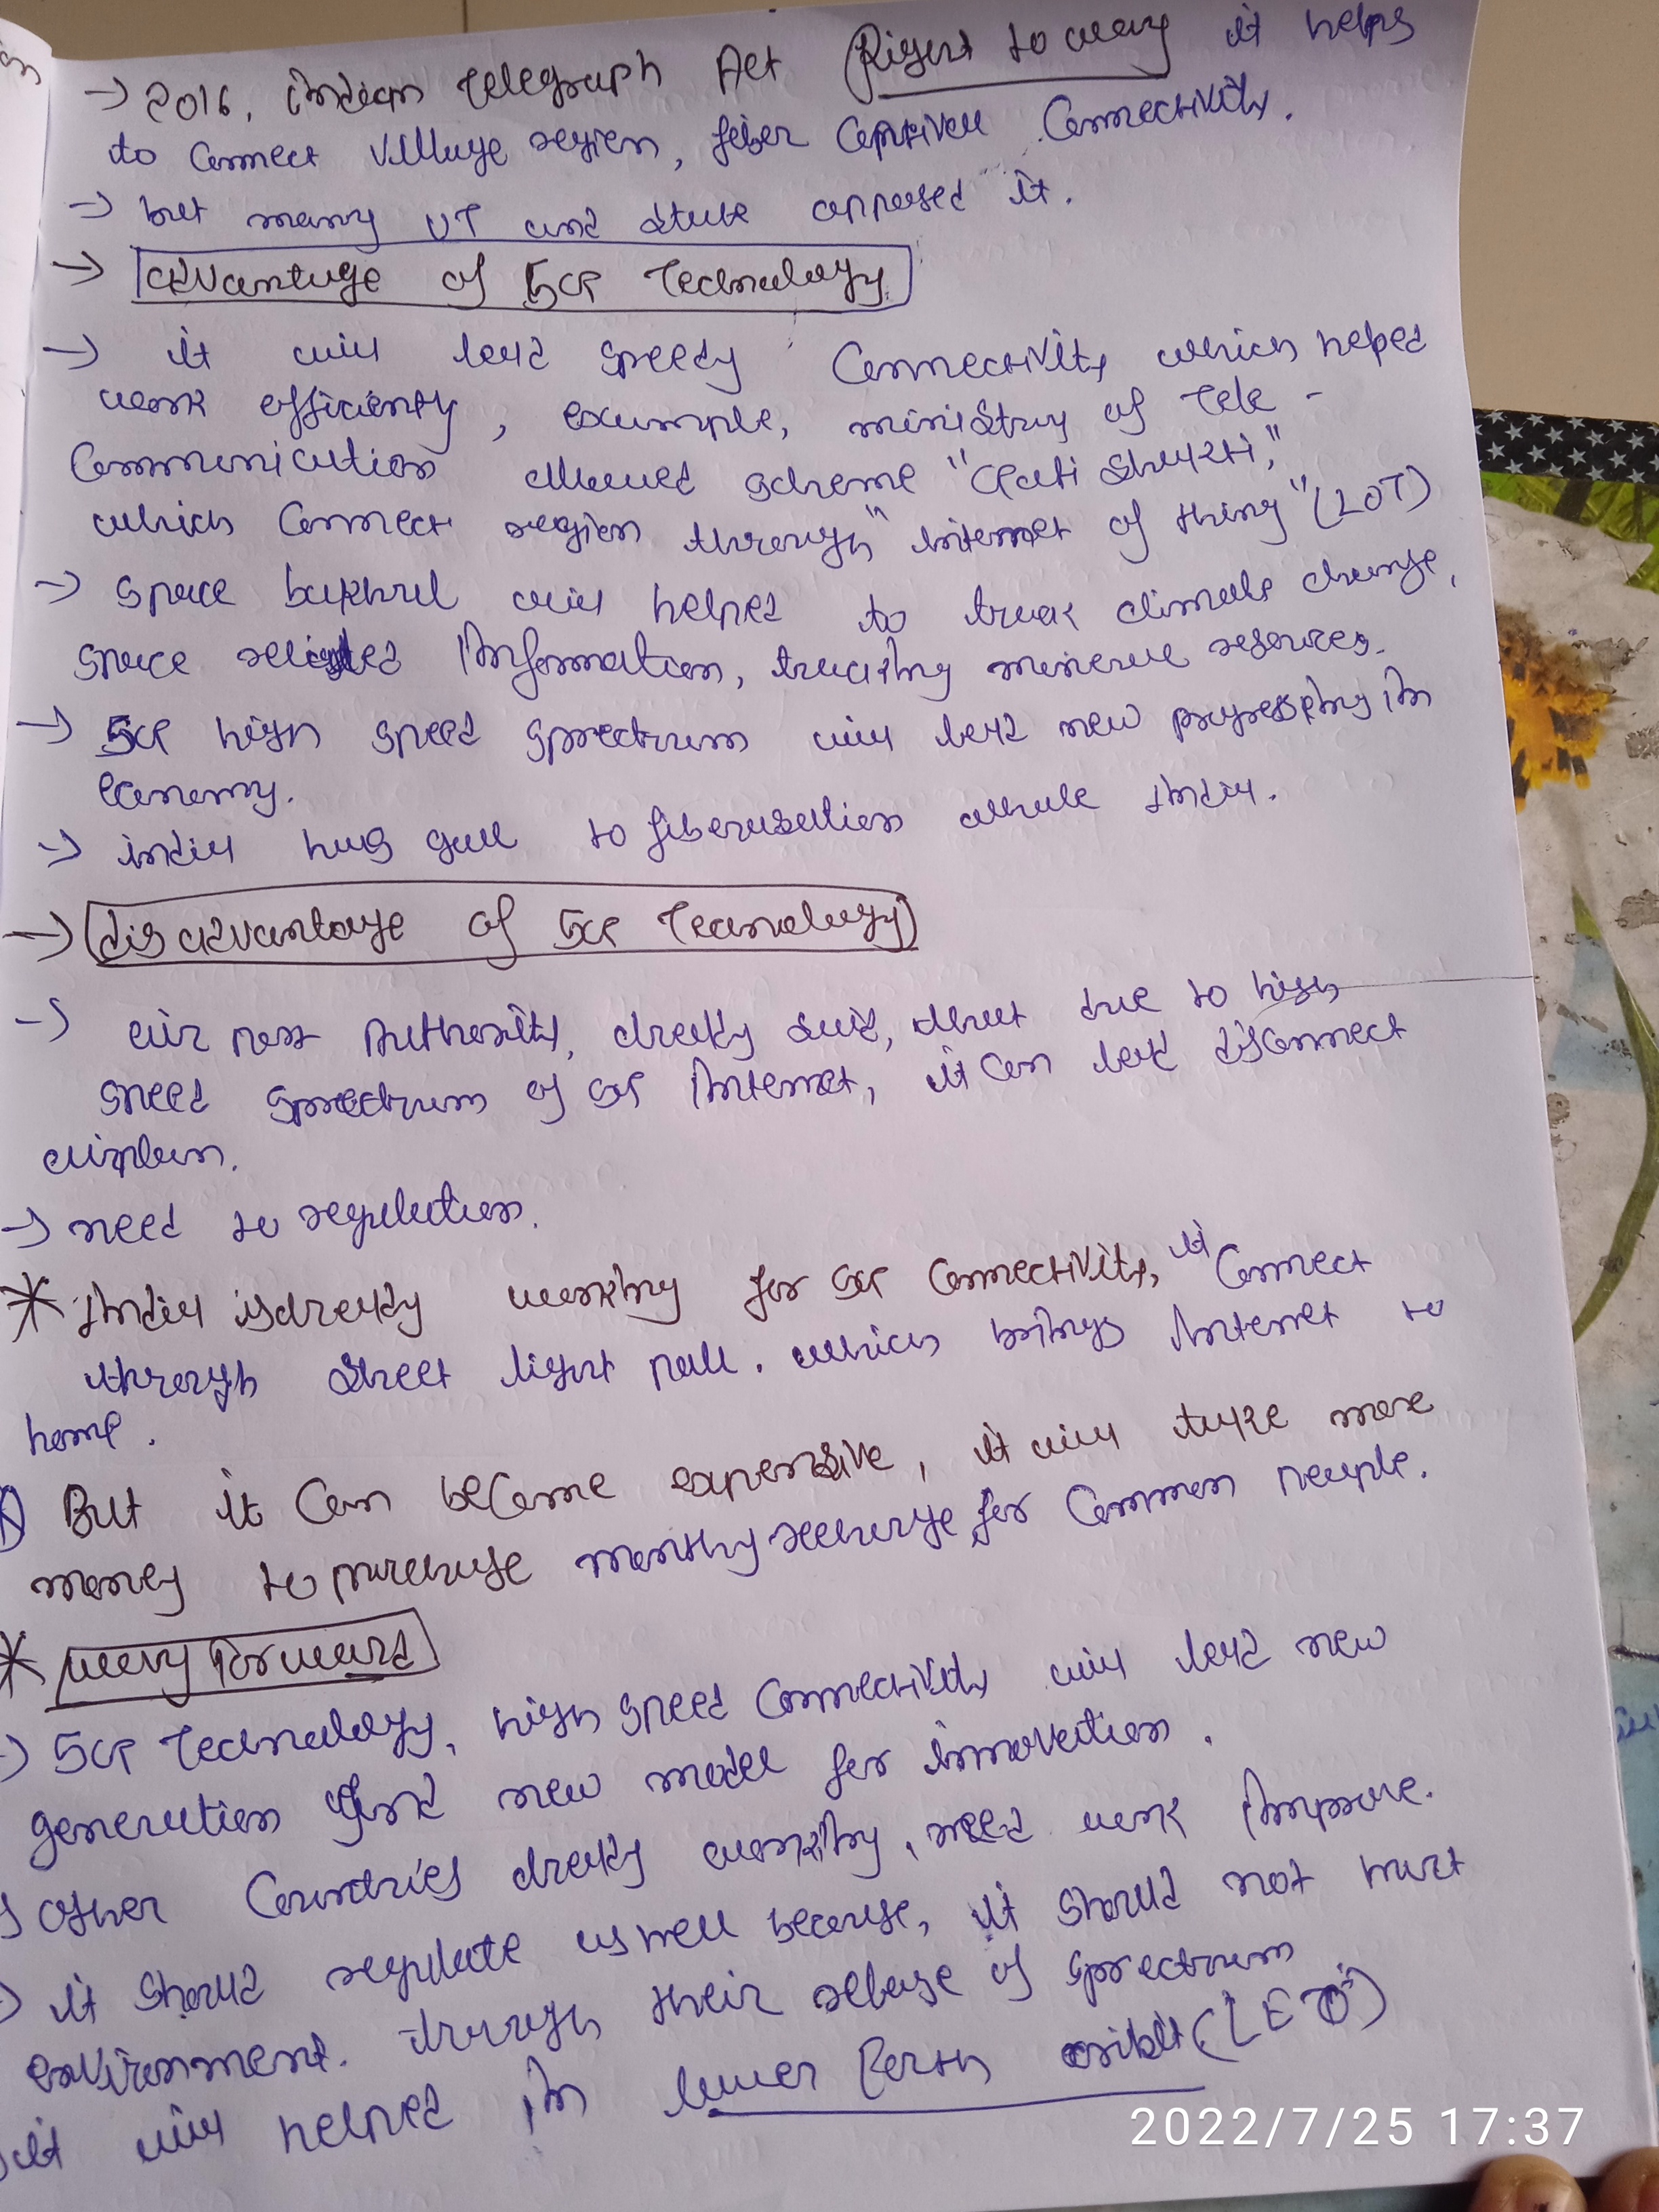 → 2016, indian Telegraph Act Right to way it helps
to connect village region, fiber optical connectivity.
→ but many UT and state opposed it.
→ advantage of 5G Technology
→ it will lead speedy connectivity which helped
work efficiency, example, ministry of Tele -
communication allowed scheme "Gati Shakti,"
which connect region through "internet of thing" (IOT)
→ space will helped to track climate change,
space related information, tracking mineral resources.
→ 5G high speed spectrum will lead new progressing in
economy.
→ india has goal to fiberisation whole india.
→ disadvantage of 5G Technology
→ air port Authority, already said, that due to high
speed spectrum of 5G internet, it can lead disconnect
airplan.
→ need to regulation.
* india is already working for 5G connectivity, it connect
through street light poll. which brings internet to
home.
But it can become expensive, it will take more
money to purchase monthly recharge for common people.
* way forward
→ 5G Technology, high speed connectivity will lead new
generation and new model for innovation.
→ other countries already working, need work improve.
→ it should regulate as well because, it should not hurt
environment. through their release of spectrum
it will helped in lower Earth orbit (LEO)
2022/7/25 17:37